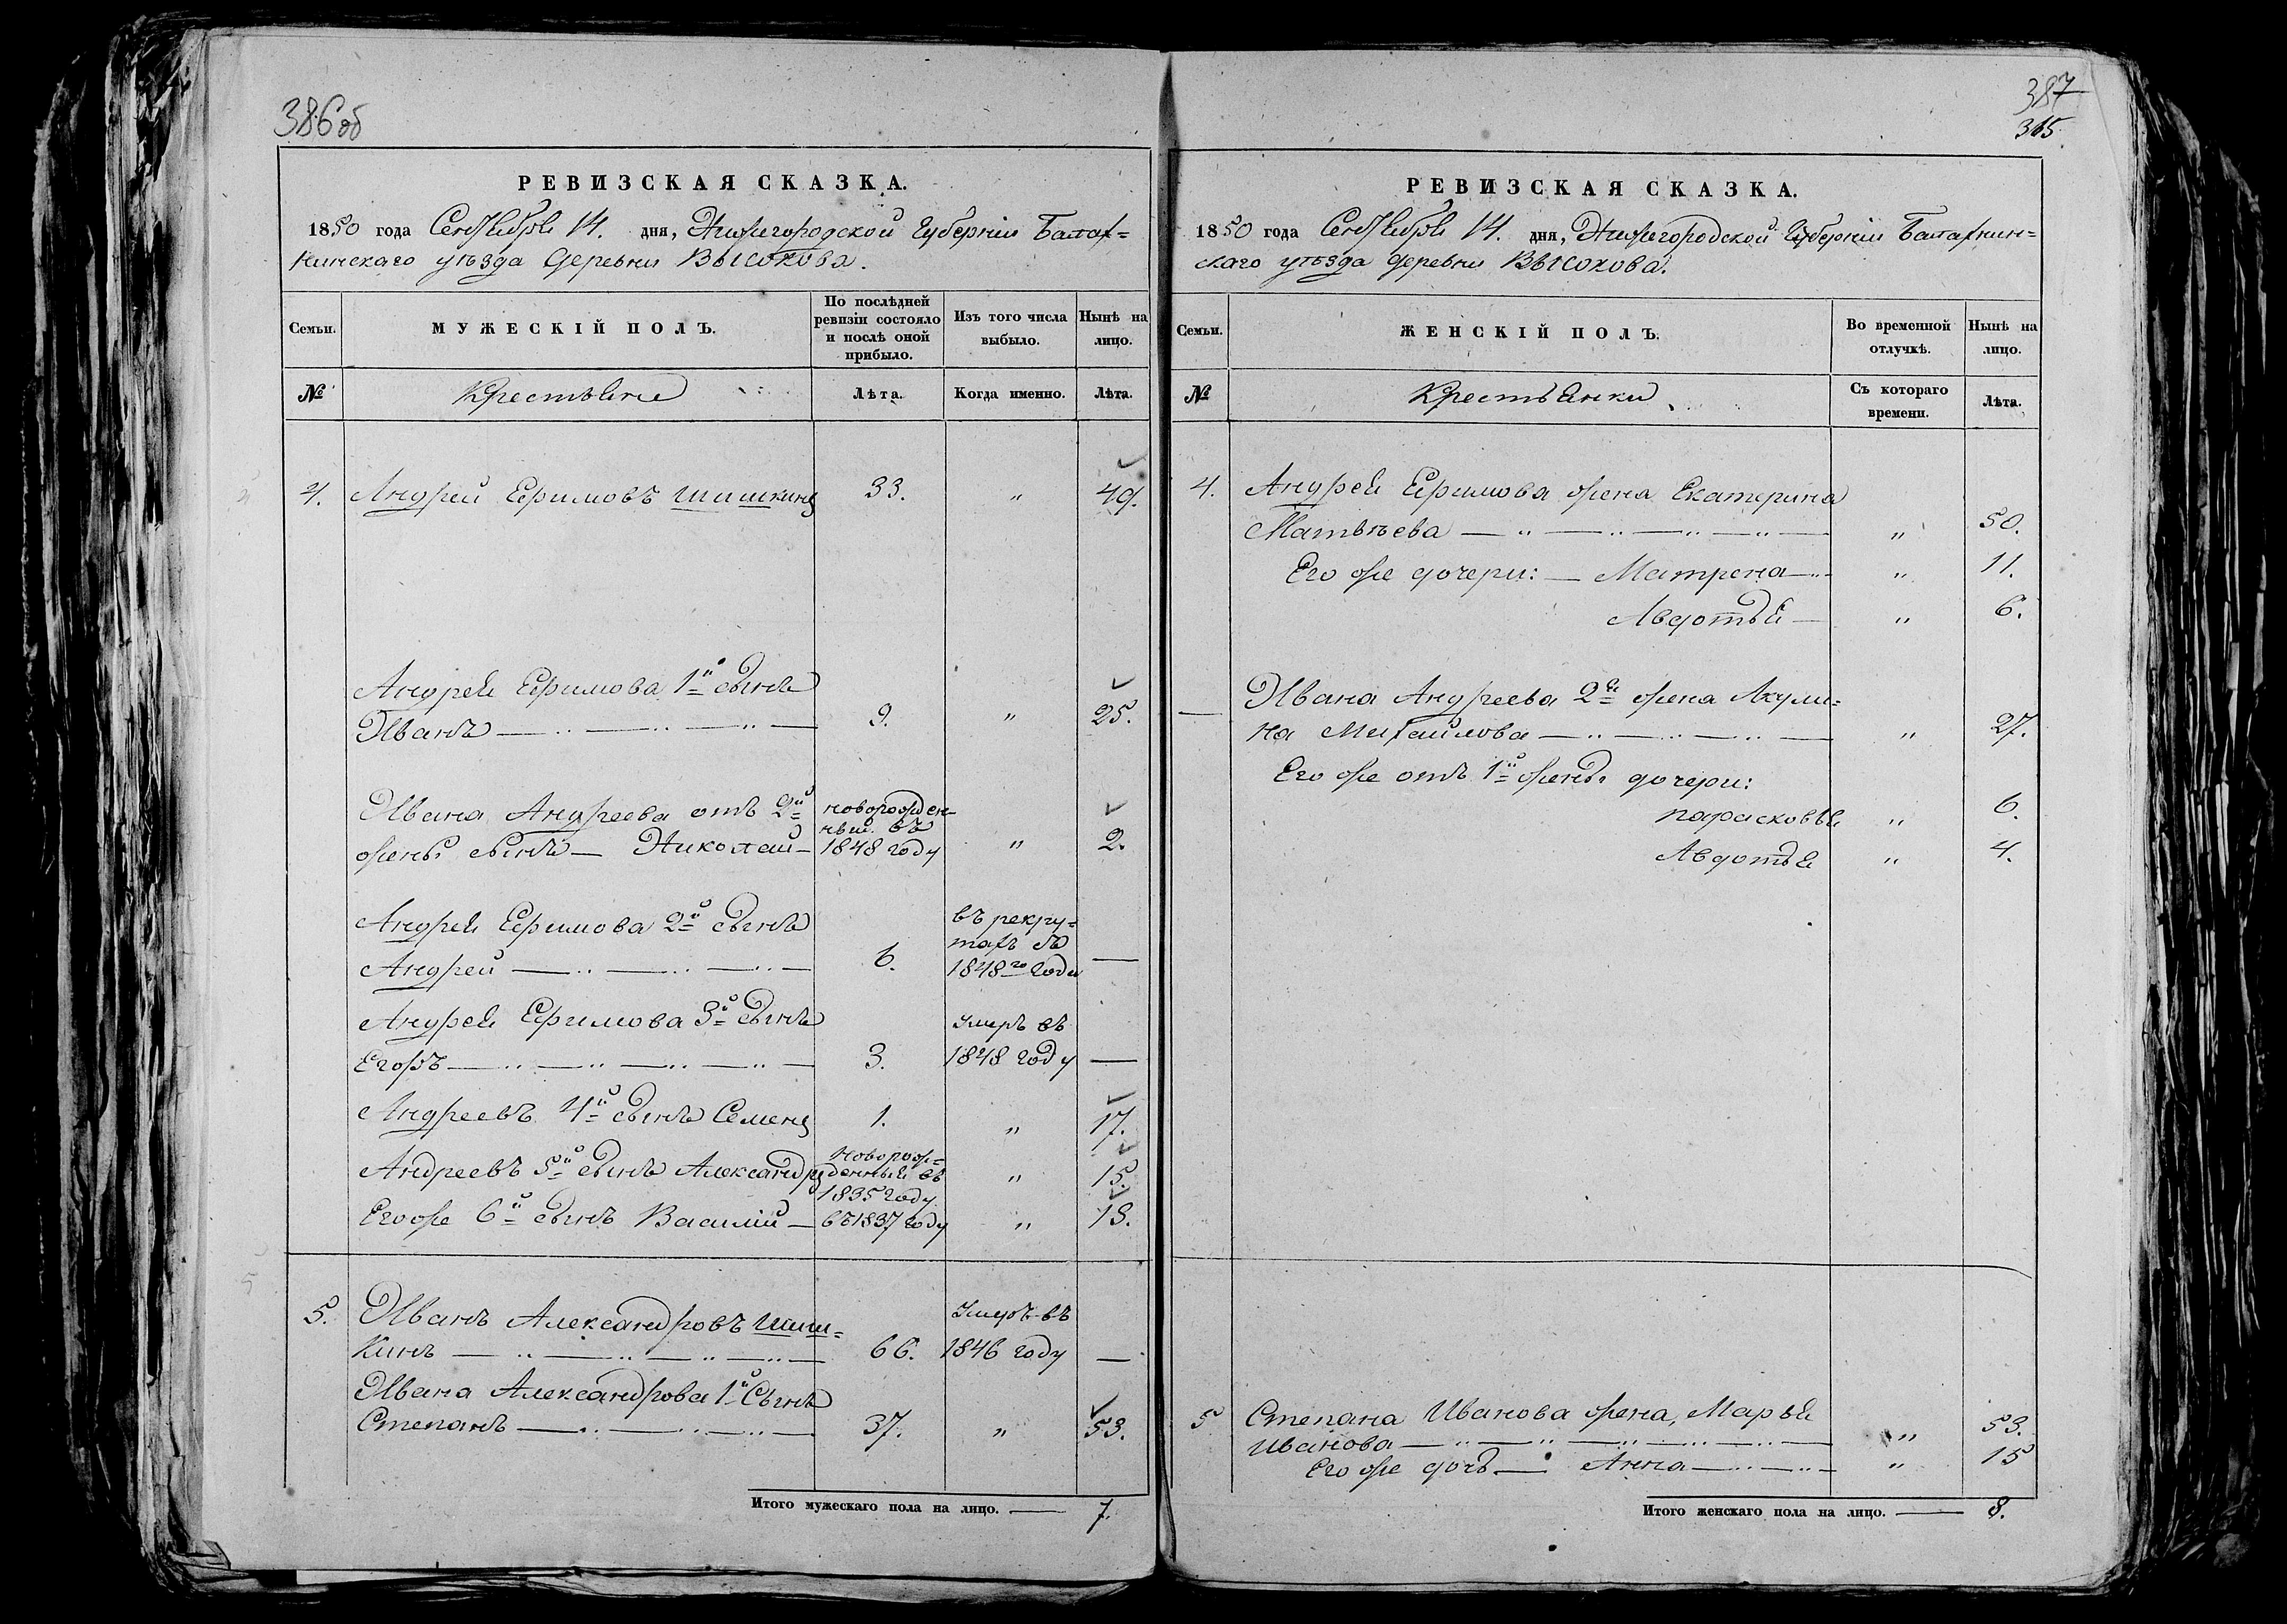 386об
РЕВИЗСКАЯ СКАЗКА.
1850 года Сентября 14. дня, Нижегородской Губернiи Балах=
нинскаго уѣзда Деревни Высокова.
Семьи.
МУЖЕСКIЙ ПОЛЪ.
По послѣдней
ревизiи состояло
и послѣ оной
прибыло.
Изъ того числа
выбыло.
Нынѣ на
лицо.
№
Крестьяне
Лѣта.
Когда именно.
Лѣта.
4. Андрей Ефимовъ Шишкинъ 33. " 49.
Андрея Ефимова 1й сынъ
Иванъ 9. " 25.
Ивана Андреева отъ 2й новорожден=
ный въ
жены сынъ — Николай — 1848 году " 2.
Андрея Ефимова 2й сынъ въ рекру=
тахъ съ
Андрей 6. 1848го года —
Андрея Ефимова 3й сынъ умеръ въ
Егоръ 3. 1848 году —
Андреевъ 4й сынъ Семенъ 1. " 17.
новорож=
Андреевъ 5й сынъ Александръ денный въ " 15.
1835 году
Его же 6й сынъ Василiй — въ 1837 году " 13.
5. Иванъ Александровъ Шиш= умеръ въ
кинъ 66. 1846 году —
Ивана Александрова 1й Сынъ
Степанъ 37. " 53.
Итого мужескаго пола на лицо. — 7.
387
315.
РЕВИЗСКАЯ СКАЗКА.
1850 года Сентября 14. дня, Нижегородской Губернiи Балахнин=
скаго уѣзда деревни Высокова.
Семьи.
ЖЕНСКIЙ ПОЛЪ.
Во временной
отлучкѣ.
Нынѣ на
лицо.
№
Крестьянки
Съ котораго
времени.
Лѣта.
4. Андрея Ефимова жена Екатерина
Матвѣева " 50.
Его же дочери: — Матрена " 11.
Авдотья — " 6.
— Ивана Андреева 2я жена Акули=
на Михайлова " 27.
Его же отъ 1й жены дочери:
Парасковья " 6.
Авдотья " 4.
5 Степана Иванова жена, Марья
Иванова " 53.
Его же дочь — Анна " 15
Итого женскаго пола на лицо. — 8.